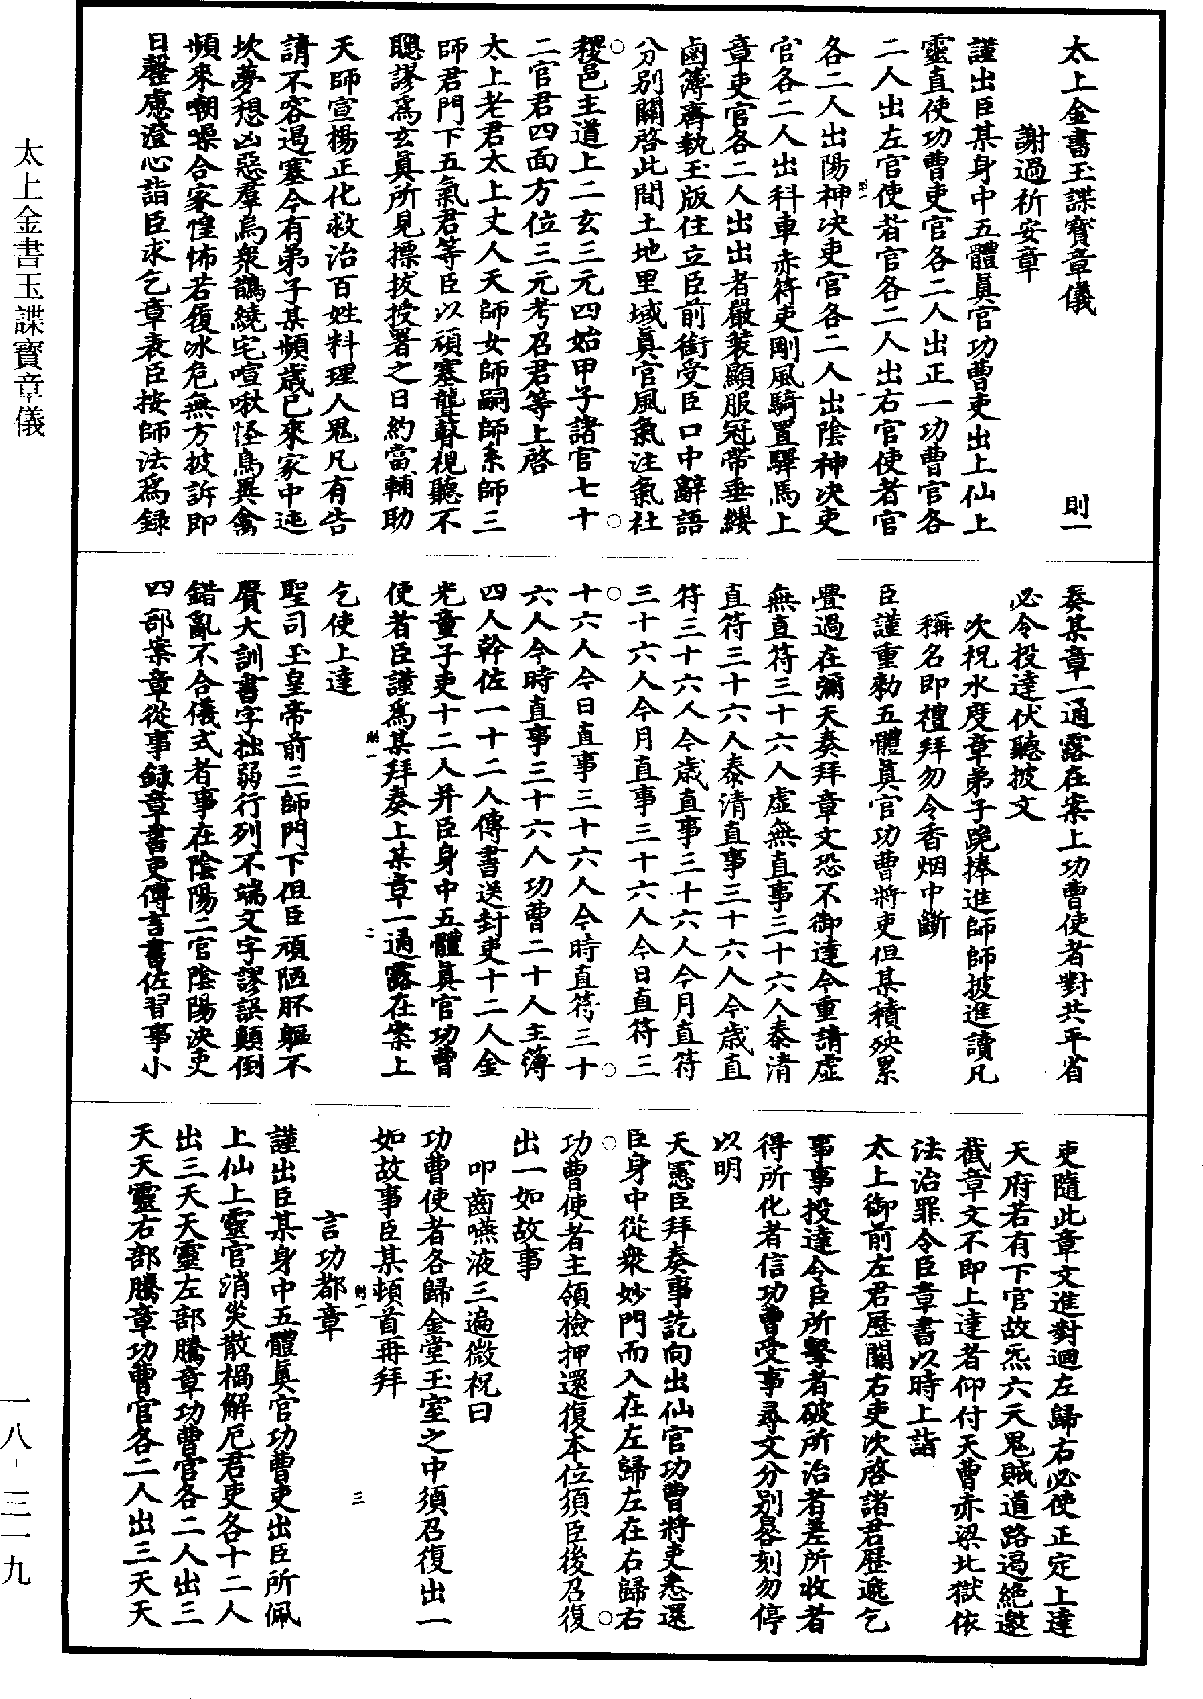 太上金書玉諜寶章儀
則一
謝過祈安章
謹出臣某身中五體真官功曹吏出上仙上
靈直使功曹吏官各二人出正一功曹官各
二人出左官使者官各二人出右官使者官
各二人出陽神决吏官各二人出陰神决吏
官各二人出科車赤符吏剛風騎置驛馬上
章吏官各二人出出者嚴裝顯服冠帶垂纓
鹵簿齊執玉版住立臣前銜受臣口中辭語
分別關啓此間土地里域真官風氣注氣社
稷邑主道上二玄三元四始甲子諸官七十
二官君四面方位三元考召君等上啓
太上老君太上丈人天師女師嗣師系師三
師君門下五氣君等臣以頑塞聾瞽視聽不
聰謬爲玄真所見摽拔授署之日約當輔助
天師宣楊正化救治百姓料理人鬼凡有告
請不容遏塞今有弟子某頻歲已來家中迍
坎夢想凶惡羣烏衆鵲繞宅喧啾怪鳥異禽
頻來嘲噪合家惶怖若履冰危無方披訴即
日罄慮澄心詣臣求乞章表臣按師法爲録
奏某章一通露在案上功曹使者對共平省
必令投達伏聽披文
次祝水度章弟子跪捧進師師披進讀凡
稱名即禮拜勿令香烟中斷
臣謹重勑五體真官功曹將吏但某積殃累
疊過在彌天奏拜章文恐不御達今重請虛
無直符三十六人虛無直事三十六人泰清
直符三十六人泰清直事三十六人今歲直
符三十六人今歲直事三十六人今月直符
三十六人今月直事三十六人今日直符三
十六人今日直事三十六人今時直符三十
六人今時直事三十六人功曹二十人主簿
四人幹佐一十二人傳書送封吏十二人金
光童子吏十二人并臣身中五體真官功曹
使者臣謹爲某拜奏上某章一通露在案上
則一
二
乞使上達
聖司玉皇帝前三師門下但臣頑陋胚軀不
賡大訓書字拙弱行列不端文字謬誤顛倒
錯亂不合儀式者事在陰陽二官陰陽决吏
四部案章從事録章書吏傳言書佐習事小
吏隨此章文進對迴左歸右必使正定上達
天府若有下官故炁六天鬼賊道路遏絶邀
截章文不即上達者仰付天曹赤梁北獄依
法治罪令臣章書以時上詣
太上御前左君歷關右吏次啓諸君歷遞乞
事事投達令臣所擊者破所治者差所收者
得所化者信功曹受事尋文分別晷刻勿停
以明
天憲臣拜奏事訖向出仙官功曹將吏悉還
臣身中從衆妙門而入在左歸左在右歸右
功曹使者主領檢押還復本位須臣後召復
出一如故事
叩齒嚥液三遍微祝曰
功曹使者各歸金堂玉室之中須召復出一
如故事臣某頓首再拜
則一
三
言功都章
謹出臣某身中五體真官功曹吏出臣所佩
上仙上靈官消災散禍解厄君吏各十二人
出三天天靈左部騰章功曹官各二人出三
天天靈右部騰章功曹官各二人出三天天
太上金書玉諜寶章儀
一八-三一九